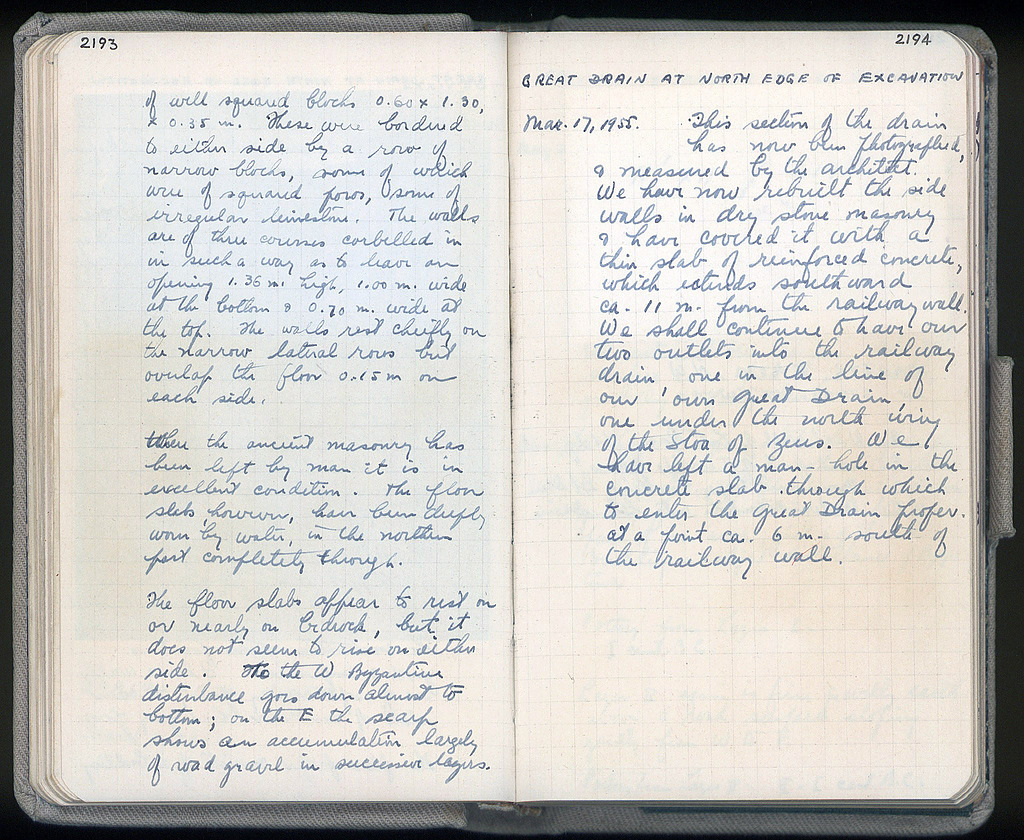 2193
of well squared blocks 0.60 x 1.30,
x 0.35 m. These were bordered
to either side by a row of
narrow blocks, some of which
were of squared poros, some of
irregular limestone. The walls
are of three courses corbelled in
in such a way as to leave an
opening 1.36 m. high, 1.00 m. wide
at the bottom & 0.70 m. wide at
the top. The walls rest chiefly on
the narrow lateral rows but
overlap the floor 0.15 m on
each side.
Where the ancient masonry has
been left by man it is in
excellent condition. The floor
slabs, however, have been deeply
worn by water, in the northern
part completely through.
The floor slabs appear to rest on
or nearly on bedrock, but it
does not seem to rise on either
side. To the W Byzantine
disturbance goes down almost to
bottom; on the E the scarp
shows an accumulation largely
of road gravel in successive layers.
2194
GREAT DRAIN AT NORTH EDGE OF EXCAVATION
Mar. 17, 1955. This section of the drain
has now been photographed,
& measured by the architect.
We have now rebuilt the side
walls in dry stone masonry
& have covered it with a
thin slab of reinforced concrete,
which extends southward
ca. 11 m. from the railway wall.
We shall continue to have our
two outlets into the railway
drain, one in the line of
our 'own Great Drain',
one under the north wing
of the Stoa of Zeus. We
have left a man-hole in the
concrete slab through which
to enter the Great Drain proper.
at a point ca. 6 m. south of
the railway wall.